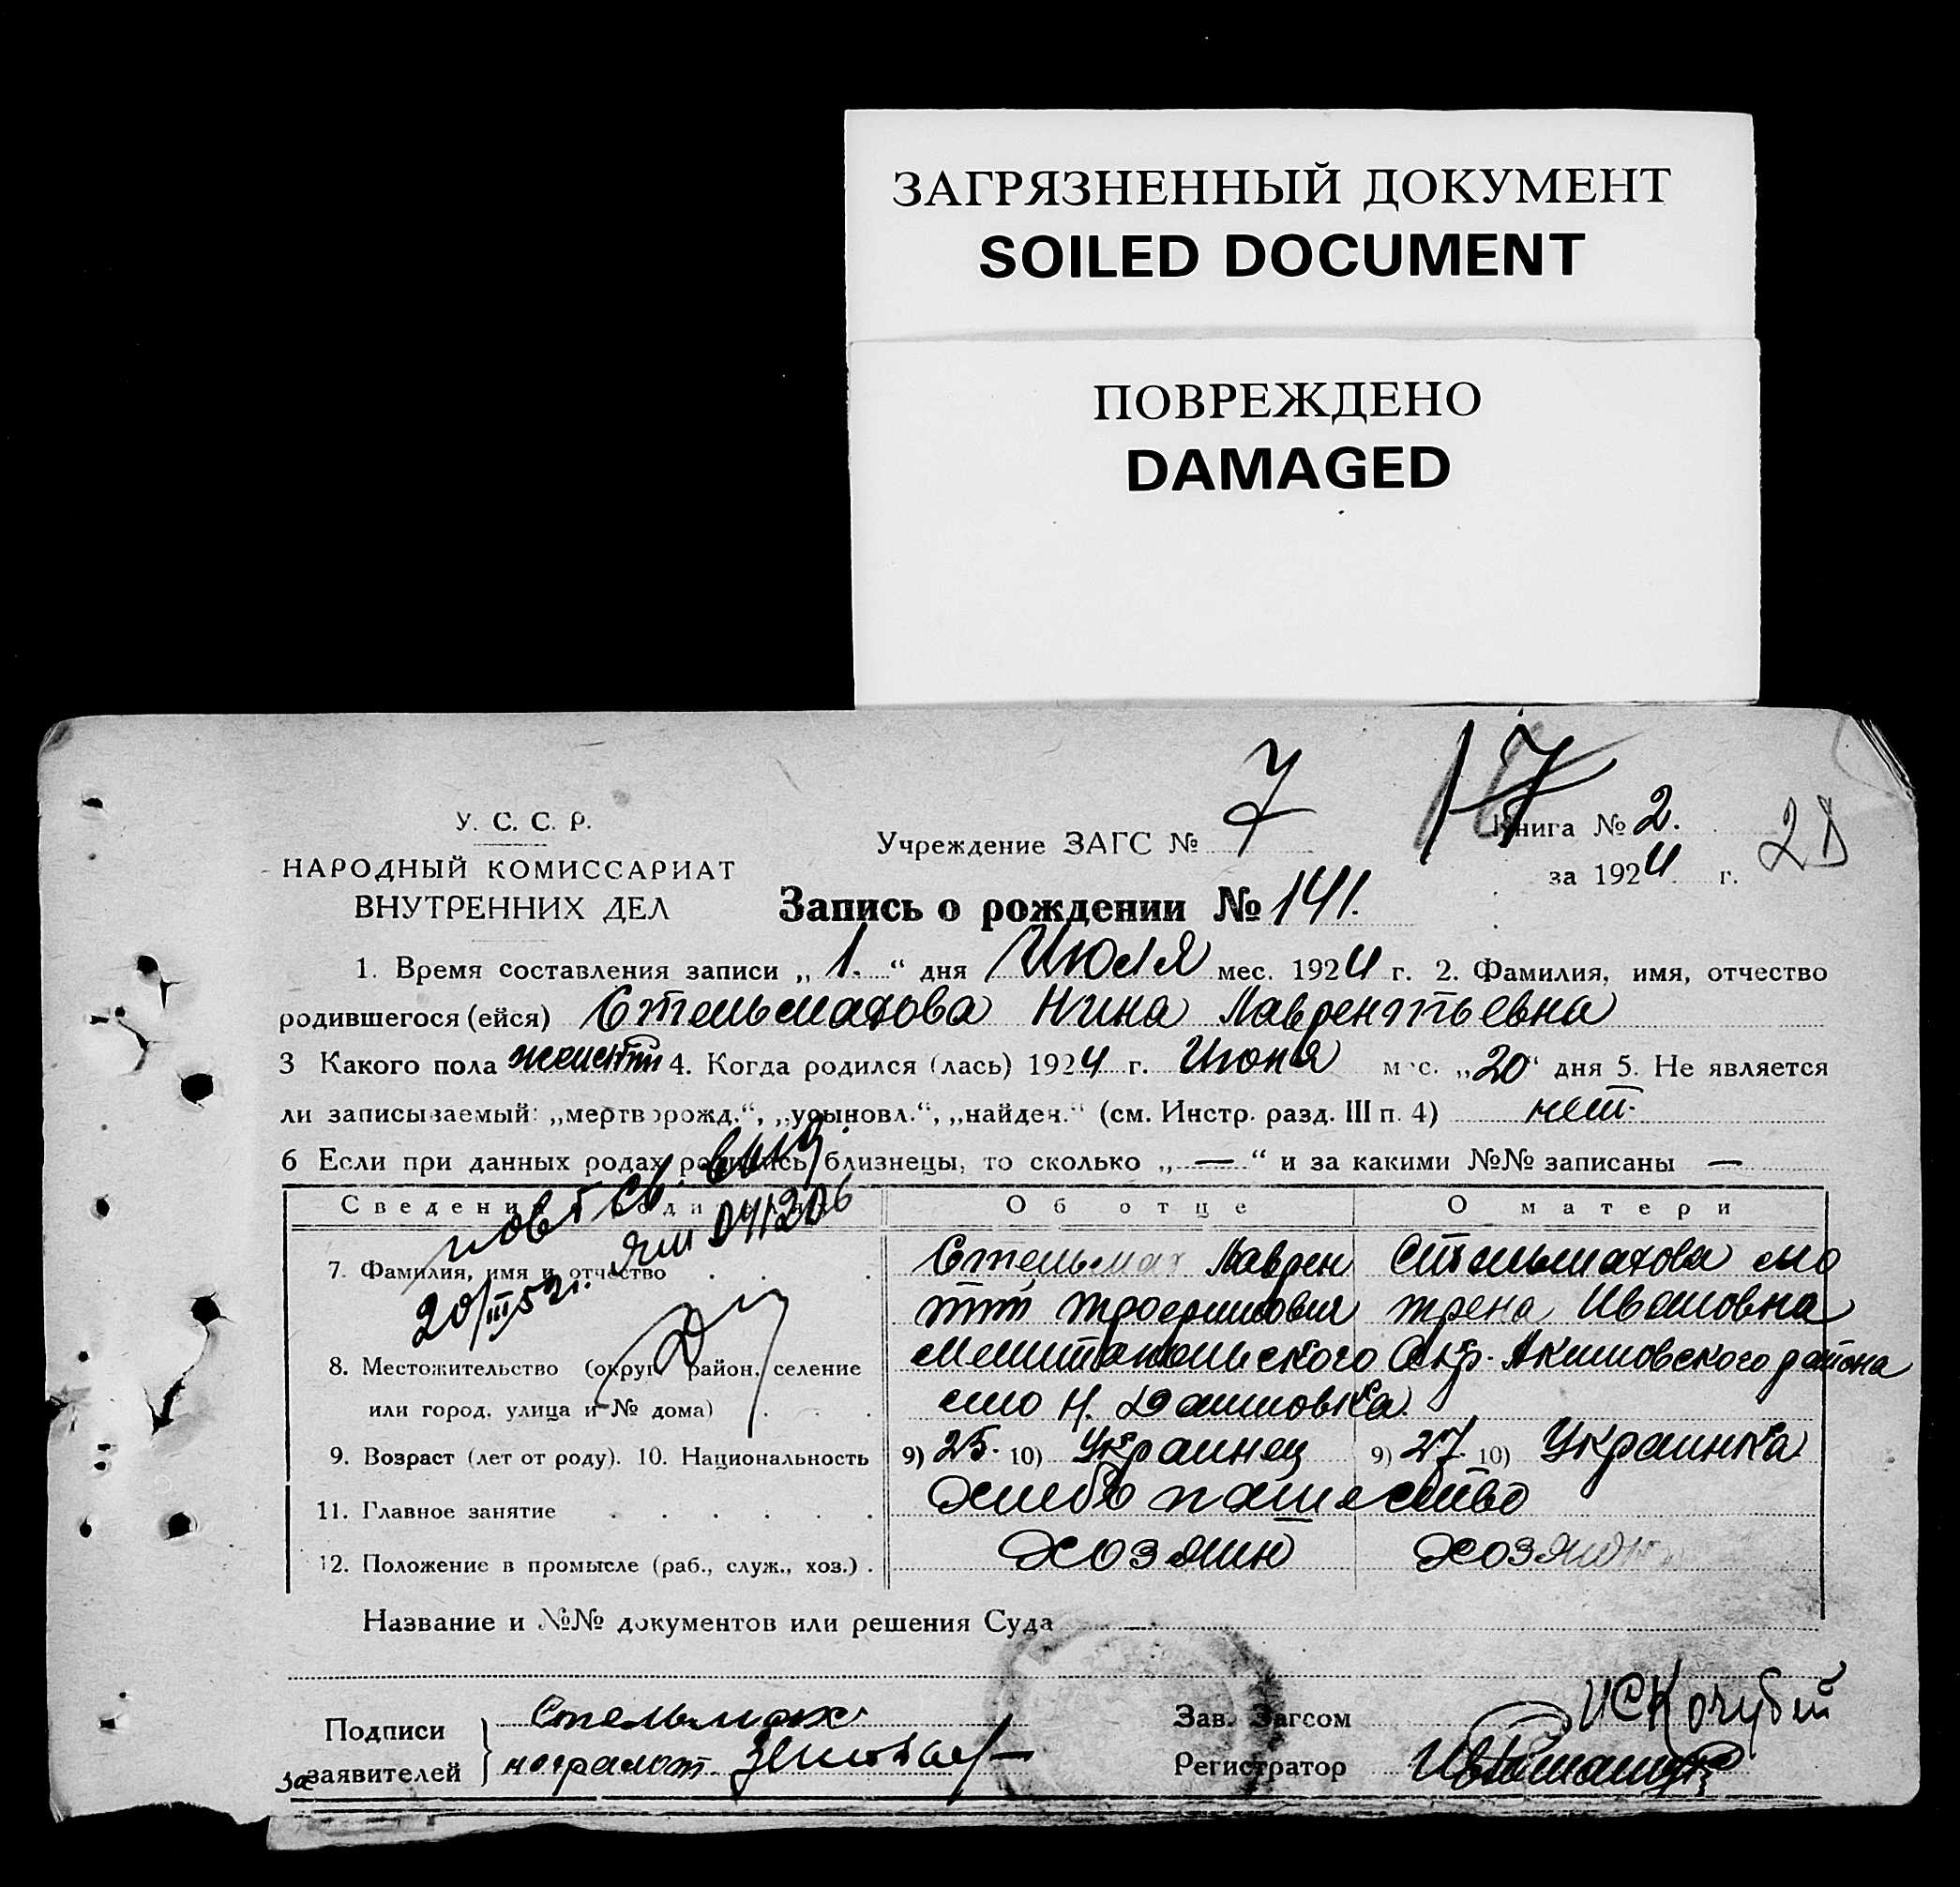 ЗАГРЯЗНЕННЫЙ ДОКУМЕНТ
SOILED DOCUMENT
ПОВРЕЖДЕНО
DAMAGED
17
У. С. С. Р.
НАРОДНЫЙ КОМИССАРИАТ
ВНУТРЕННИХ ДЕЛ
Учреждение ЗАГС № 7
Книга № 2.
за 1924 г.
Запись о рождении № 141.
1. Время составления записи „ 1. “ дня Июля мес. 1924 г. 2. Фамилия, имя, отчество
родившегося (ейся) Стельмахова Нина Лаврентьевна
3 Какого пола 4. Когда родился (лась) 1924 г. Июня мес. „20“ дня 5. Не является
ли записываемый: „мертворожд.“, „усыновл.“, „найден.“ (см. Инстр. разд. III п. 4) нет.
6 Если при данных родах родились близнецы, то сколько „ — “ и за какими №№ записаны —
Об отце О матери
7. Фамилия, имя и отчество Стельмах Лаврен Стельмахова мо
тий трена Ивановна
20/III 52 г.
8. Местожительство (округ район, селение Мелитопольского Окр. Акимовского района
или город, улица и № дома) село Н. Даниловка.
9. Возраст (лет от роду). 10. Национальность 9) 25. 10) Украинец 9) 27. 10) Украинка
11. Главное занятие хлебопашество
12. Положение в промысле (раб., служ., хоз.) хозяин
Название и №№ документов или решения Суда —
Подписи Стельмах
заявителей неграмот.
за
Зав. Загсом
Регистратор